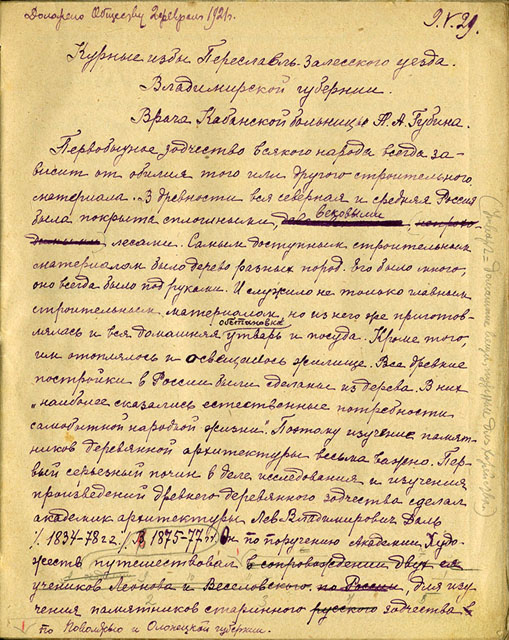 Доложено Обществу 2 февраля 1921 г.
9.V.29.
Курные избы Переславль-Залесского уезда
Владимирской губернии.
Врача Кабанской больницы А. А. Губина.
Первобытное зодчество всякого народа всегда за-
висит от обилия того или другого строительного
материала. В древности вся северная и средняя Россия
была покрыта сплошными, вековыми
лесами. Самым доступным строительным
материалом было дерево разных пород. Его было много,
оно всегда было под руками. И служило не только главным
строительным материалом, но из него же приготов-
лялась и вся домашняя обстановка, утварь и посуда. Кроме того,
им отоплялось и освещалось жилище. Все древние
постройки в России были сделаны из дерева. В них
„наиболее сказались естественные потребности
самобытной народной жизни". Поэтому изучение памят-
ников деревянной архитектуры весьма важно. Пер-
вый серьезный почин в деле исследования и изучения
произведений древнего деревянного зодчества сделал
академик архитектуры Лев Владимирович Даль
/. 1834-78 г.г. /. В 1875-77 г. Он по поручению Академии Худо-
жеств путешествовал в сопровождении двух
учеников Леонова и Веселовского, по России, для изу-
чения памятников старинного русского зодчества в
по Поволжью и Олонецкой губернии.